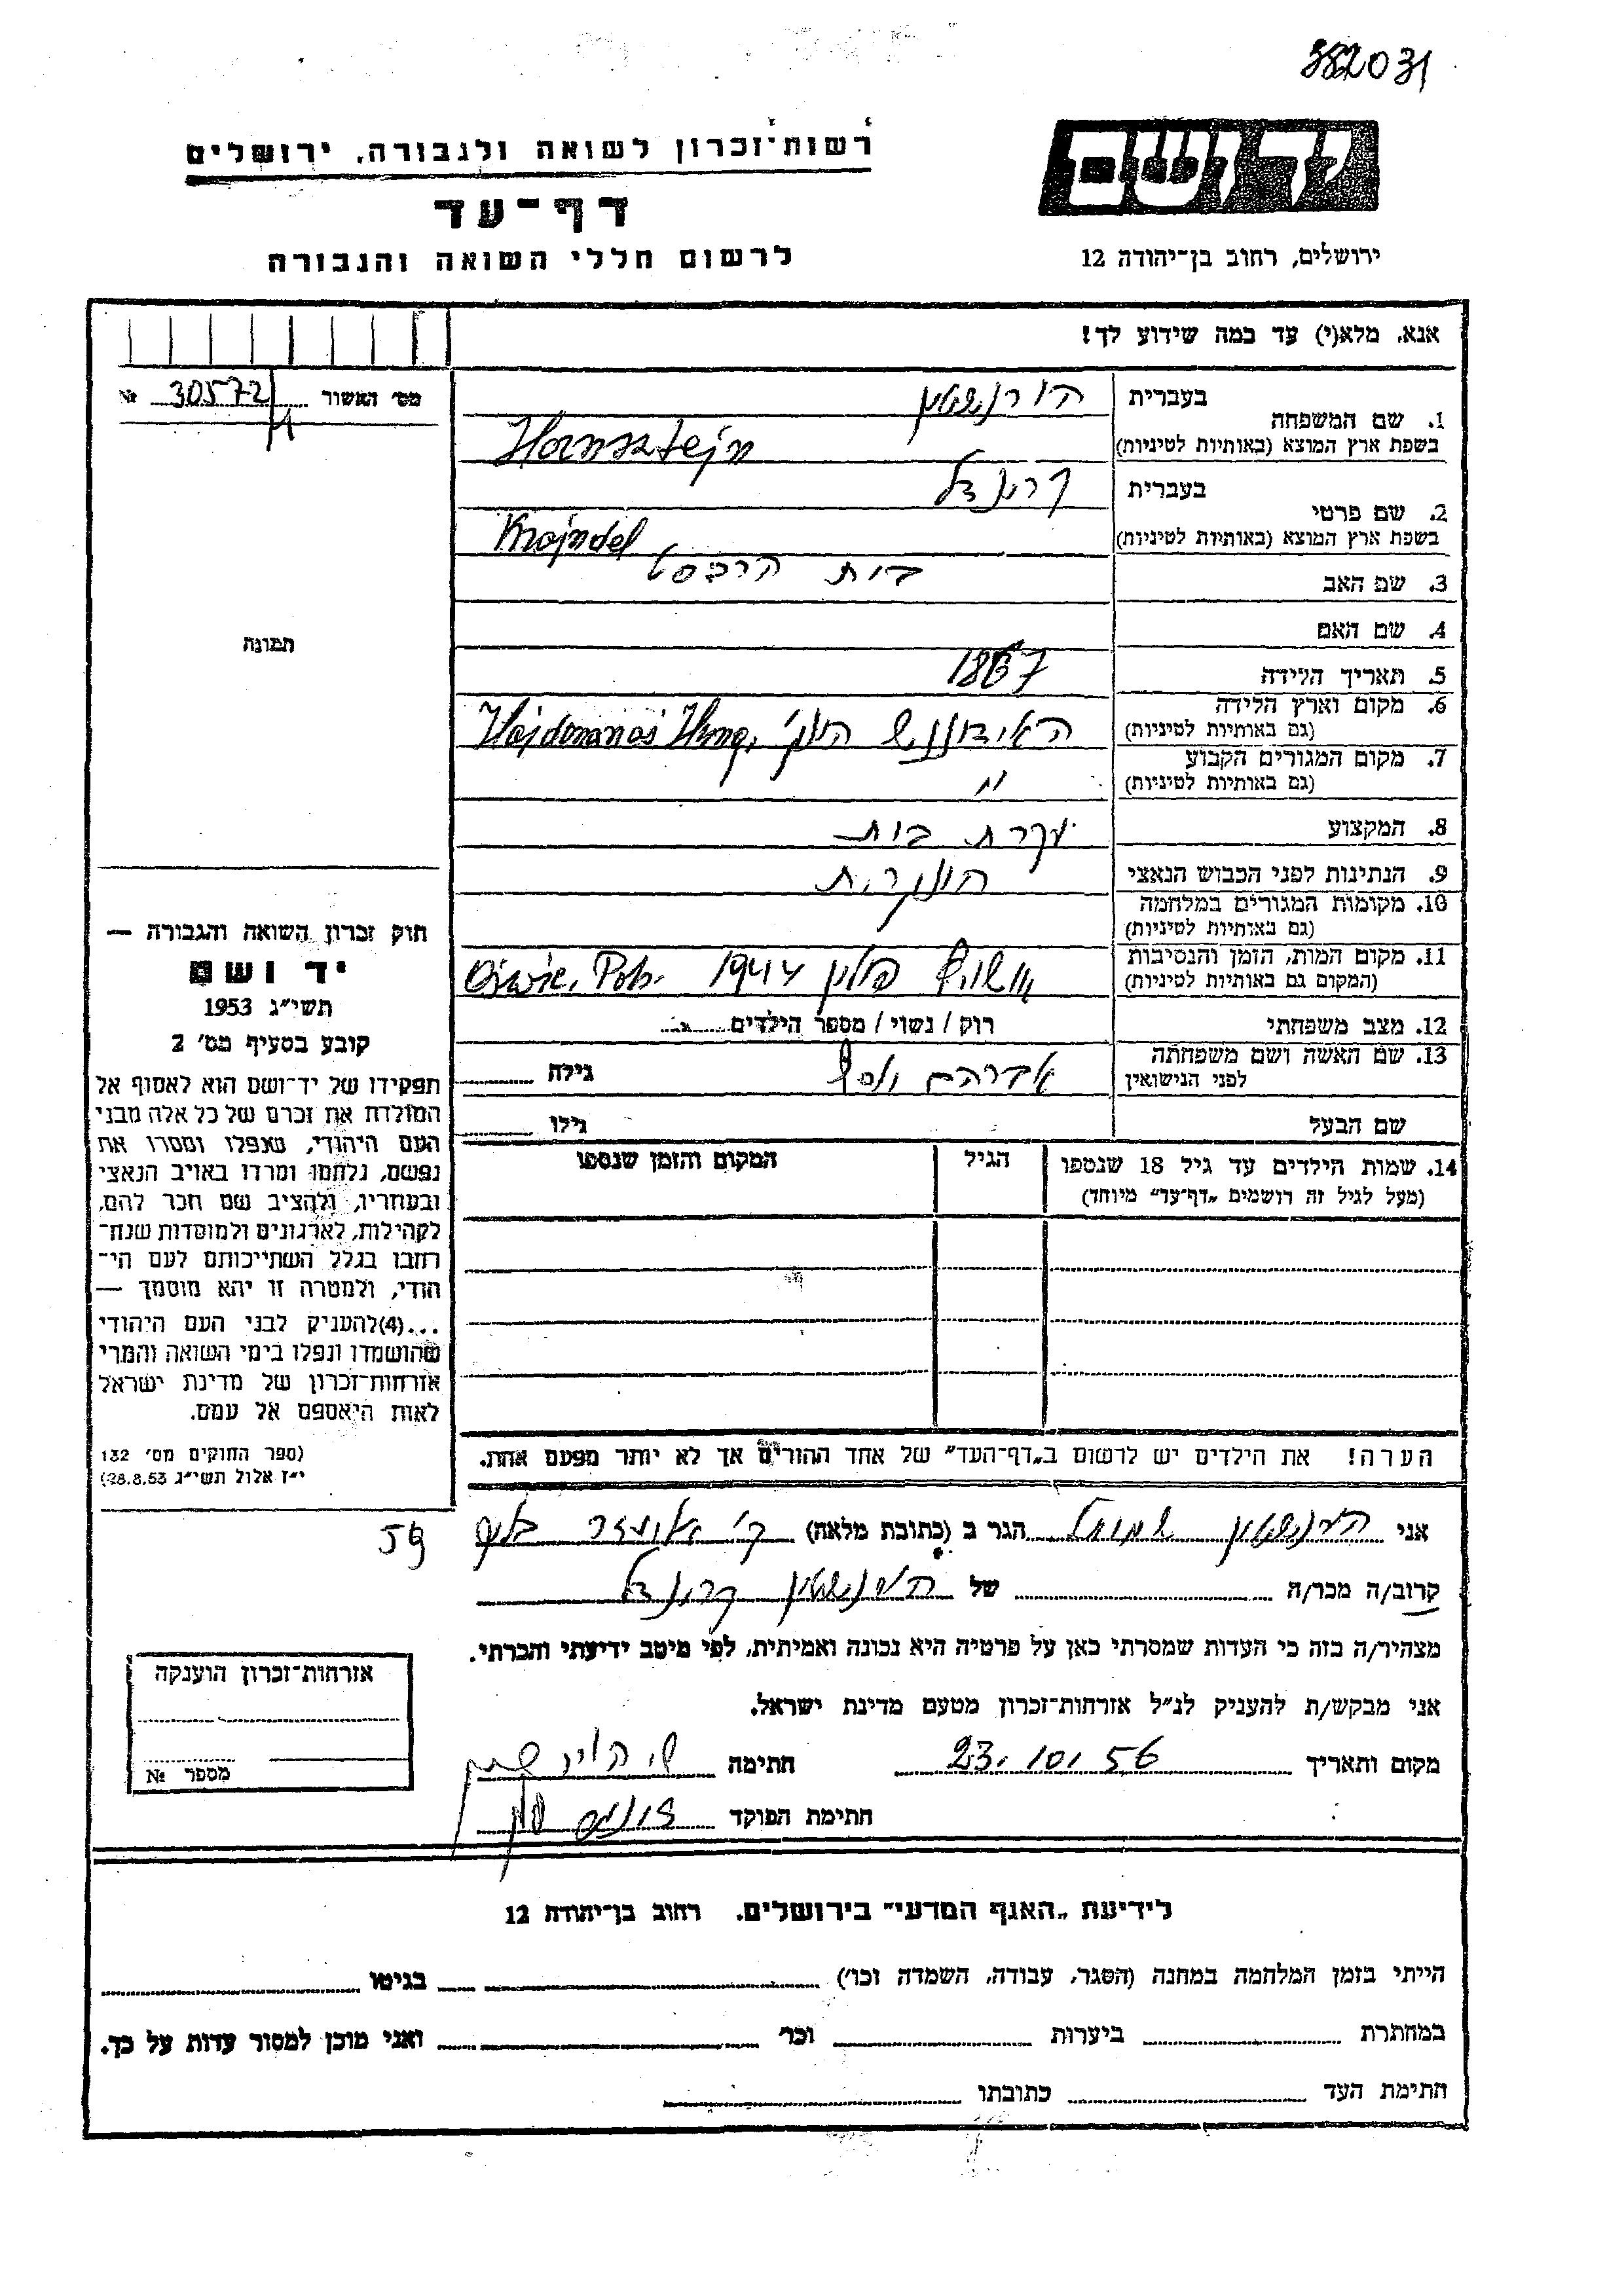 382031
רשות־זכרון לשואה ולגבורה, ירושלים
דף־עד
לרשום חללי השואה והגבורה
יד ושם
ירושלים, רחוב בן־יהודה 12
אנא, מלא(י) עד כמה שידוע לך!
מס׳ האשור 30572 №
תמונה
1. שם המשפחה בעברית הורנשטין
בשפת ארץ המוצא (באותיות לטיניות) Hornsztejn
2. שם פרטי בעברית קרינדל
בשפת ארץ המוצא (באותיות לטיניות) Krajndel
בית הרבסט
3. שם האב
4. שם האם
5. תאריך הלידה 1867
6. מקום וארץ הלידה
(גם באותיות לטיניות) הונג׳
7. מקום המגורים הקבוע
(גם באותיות לטיניות) "
8. המקצוע עקרת בית
9. הנתינות לפני הכבוש הנאצי הונגרית
10. מקומות המגורים במלחמה
(גם באותיות לטיניות)
11. מקום המות, הזמן והנסיבות
(המקום גם באותיות לטיניות) פולין 1944
12. מצב משפחתי רוק / נשוי / מספר הילדים
13. שם האשה ושם משפחתה
לפני הנישואין אברהם יוסף גילה
שם הבעל גילו
14. שמות הילדים עד גיל 18 שנספו הגיל המקום והזמן שנספו
(מעל לגיל זה רושמים „דף־עד״ מיוחד)
הערה! את הילדים יש לרשום ב„דף־העד״ של אחד ההורים אך לא יותר מפעם אחת.
חוק זכרון השואה והגבורה —
יד ושם
תשי״ג 1953
קובע בסעיף מס׳ 2
תפקידו של יד־ושם הוא לאסוף אל
המולדת את זכרם של כל אלה מבני
העם היהודי, שנפלו ומסרו את
נפשם, נלחמו ומרדו באויב הנאצי
ובעוזריו, ולהציב שם וזכר להם,
לקהילות, לארגונים ולמוסדות שנח־
רבו בגלל השתייכותם לעם הי־
הודי, ולמטרה זו יהא מוסמך —
...(4) להעניק לבני העם היהודי
שהושמדו ונפלו בימי השואה והמרי
אזרחות־זכרון של מדינת ישראל
לאות היאספם אל עמם.
(ספר החוקים מס׳ 132
י״ז אלול תשי״ג 28.8.53)
אני הורנשטין שמואל הגר ב (כתובת מלאה)
59
קרוב/ה מכר/ה של הורנשטין קרינדל
מצהיר/ה בזה כי העדות שמסרתי כאן על פרטיה היא נכונה ואמיתית, לפי מיטב ידיעתי והכרתי.
אני מבקש/ת להעניק לנ״ל אזרחות־זכרון מטעם מדינת ישראל.
מקום ותאריך 23.10.56 חתימה ש. הורנשטין
חתימת הפוקד
אזרחות־זכרון הוענקה
מספר №
לידיעת „האגף המדעי״ בירושלים, רחוב בן־יהודה 12
הייתי בזמן המלחמה במחנה (הסגר, עבודה, השמדה וכו׳) בגיטו
במחתרת ביערות וכו׳ ואני מוכן למסור עדות על כך.
חתימת העד כתובתו